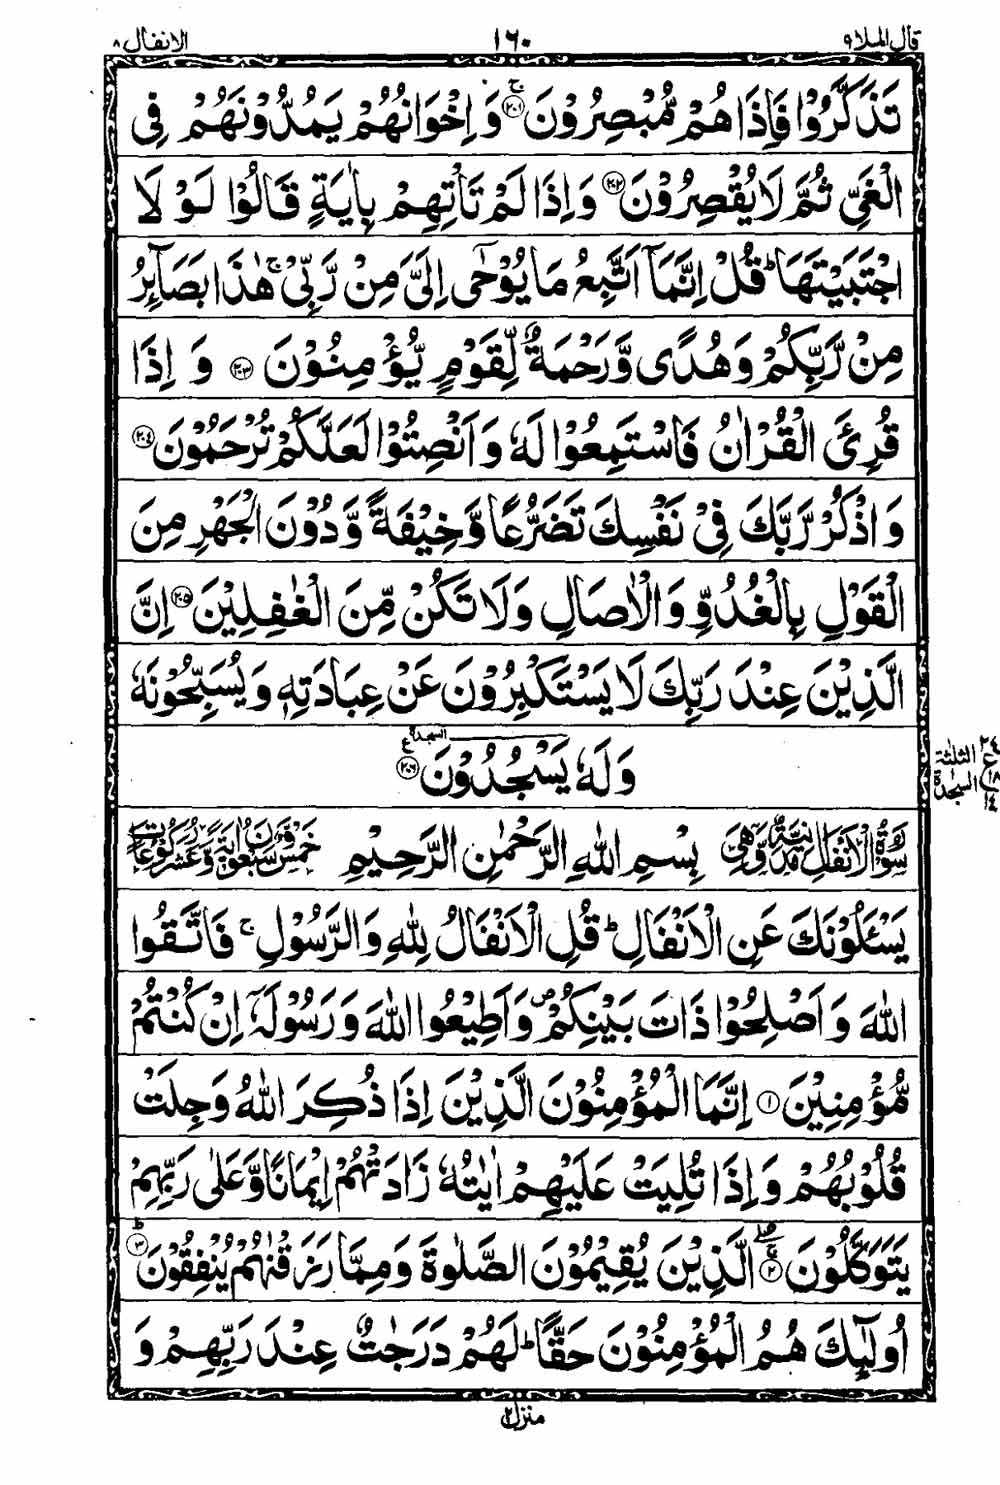 قال الملا ٩ ١٦٠ الانفال ٨
تَذَكَّرُوْا فَاِذَا هُمْ مُّبْصِرُوْنَ ۚ‏﴿۲۰۱﴾ وَ اِخْوَانُهُمْ يَمُدُّوْنَهُمْ فِى
الْغَىِّ ثُمَّ لَا يُقْصِرُوْنَ ﴿۲۰۲﴾ وَ اِذَا لَمْ تَاْتِهِمْ بِاٰيَةٍ قَالُوْا لَوْ لَا
اجْتَبَيْتَهَا ؕ قُلْ اِنَّمَاۤ اَتَّبِعُ مَا يُوْحٰٓى اِلَىَّ مِنْ رَّبِّىْ ۚ هٰذَا بَصَآئِرُ
مِنْ رَّبِّكُمْ وَ هُدًى وَّ رَحْمَةٌ لِّقَوْمٍ يُّؤْمِنُوْنَ ﴿۲۰۳﴾ وَ اِذَا
قُرِئَ الْقُرْاٰنُ فَاسْتَمِعُوْا لَهٗ وَ اَنْصِتُوْا لَعَلَّكُمْ تُرْحَمُوْنَ ﴿۲۰۴﴾
وَ اذْكُرْ رَّبَّكَ فِىْ نَفْسِكَ تَضَرُّعًا وَّ خِيْفَةً وَّ دُوْنَ الْجَهْرِ مِنَ
الْقَوْلِ بِالْغُدُوِّ وَ الْاٰصَالِ وَ لَا تَكُنْ مِّنَ الْغٰفِلِيْنَ ﴿۲۰۵﴾ اِنَّ
الَّذِيْنَ عِنْدَ رَبِّكَ لَا يَسْتَكْبِرُوْنَ عَنْ عِبَادَتِهٖ وَ يُسَبِّحُوْنَهٗ
وَ لَهٗ يَسْجُدُوْنَ ﴿۲۰۶﴾ السجدة ع
۲۴ ع ۱۸ ۱۴ الثلثة السجدة
سُوْرَةُ الْاَنْفَالِ مَدَنِيَّةٌ وَّهِىَ بِسْمِ اللهِ الرَّحْمٰنِ الرَّحِيْمِ خَمْسٌ وَّسَبْعُوْنَ اٰيَةً وَّعَشْرُ رُكُوْعَاتٍ
يَسْـَٔلُوْنَكَ عَنِ الْاَنْفَالِ ؕ قُلِ الْاَنْفَالُ لِلّٰهِ وَ الرَّسُوْلِ ۚ فَاتَّقُوا
اللهَ وَ اَصْلِحُوْا ذَاتَ بَيْنِكُمْ ۪ وَ اَطِيْعُوا اللهَ وَ رَسُوْلَهٗۤ اِنْ كُنْتُمْ
مُّؤْمِنِيْنَ ﴿۱﴾ اِنَّمَا الْمُؤْمِنُوْنَ الَّذِيْنَ اِذَا ذُكِرَ اللهُ وَجِلَتْ
قُلُوْبُهُمْ وَ اِذَا تُلِيَتْ عَلَيْهِمْ اٰيٰتُهٗ زَادَتْهُمْ اِيْمَانًا وَّ عَلٰى رَبِّهِمْ
يَتَوَكَّلُوْنَ ﴿۲﴾ الَّذِيْنَ يُقِيْمُوْنَ الصَّلٰوةَ وَ مِمَّا رَزَقْنٰهُمْ يُنْفِقُوْنَ ؕ﴿۳﴾
اُولٰٓئِكَ هُمُ الْمُؤْمِنُوْنَ حَقًّا ؕ لَهُمْ دَرَجٰتٌ عِنْدَ رَبِّهِمْ وَ
منزل ۲